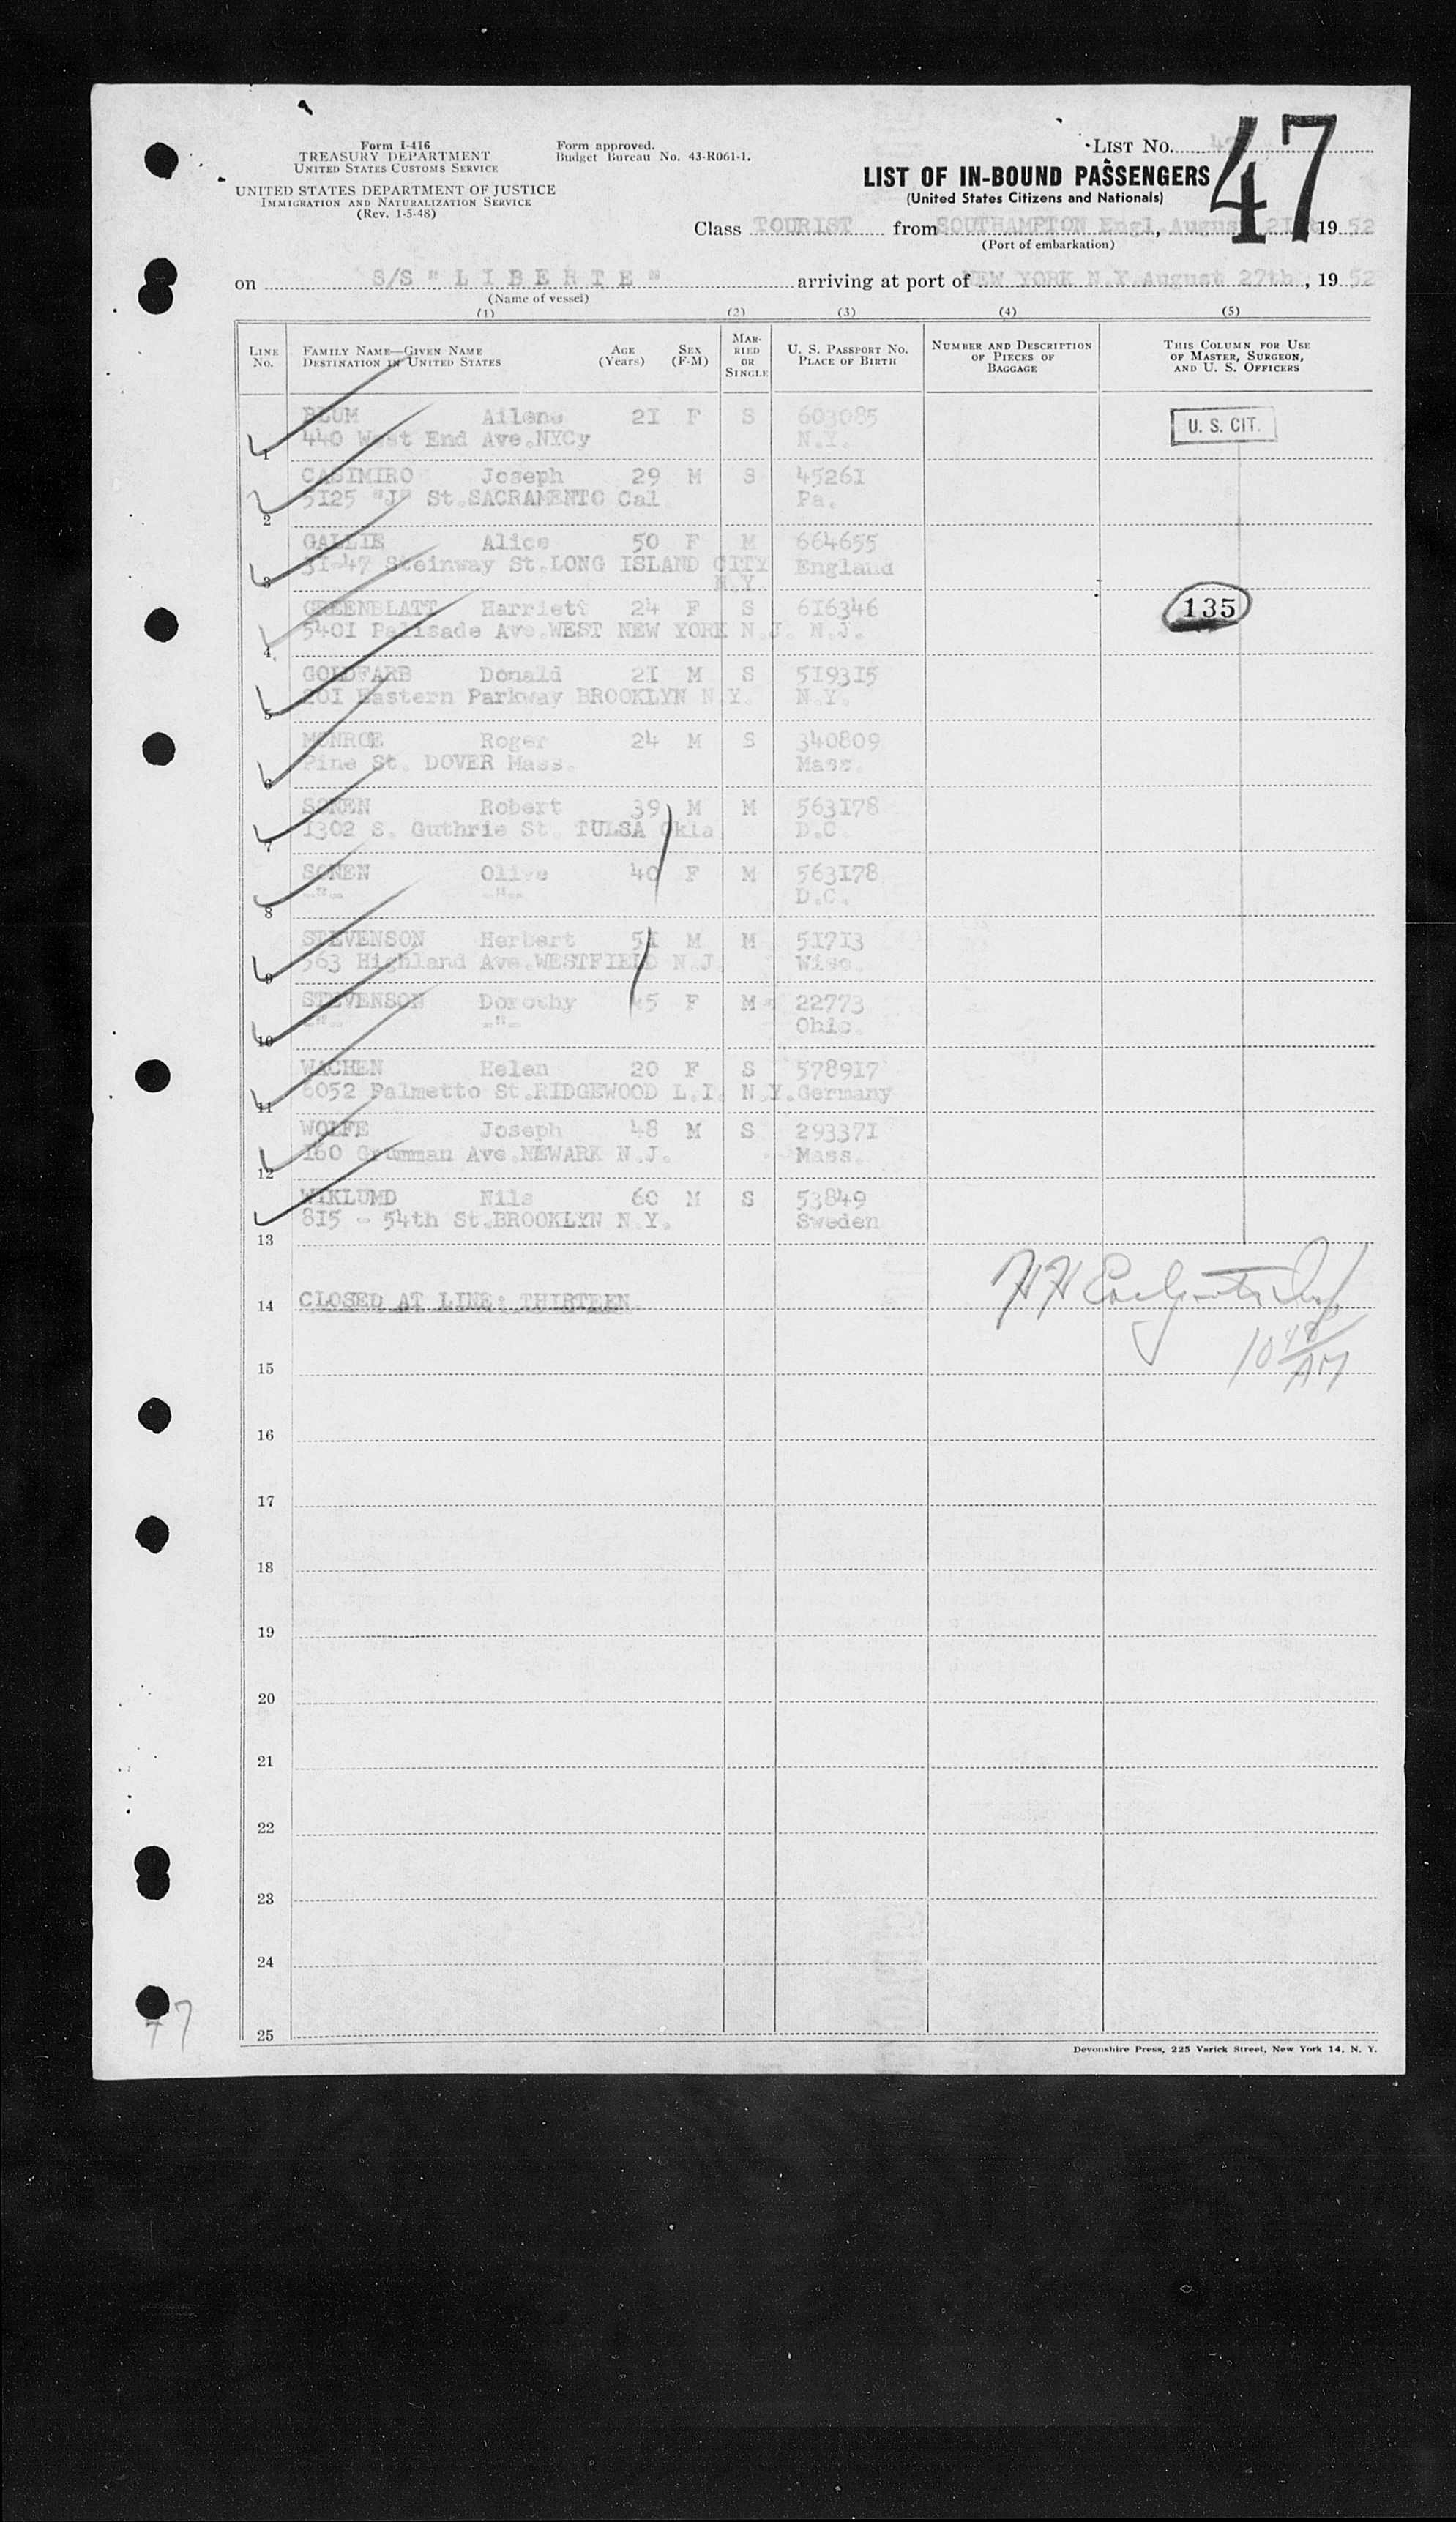 Form I-416
TREASURY DEPARTMENT
UNITED STATES CUSTOMS SERVICE
UNITED STATES DEPARTMENT OF JUSTICE
IMMIGRATION AND NATURALIZATION SERVICE
(Rev. 1-5-48)
Form approved.
Budget Bureau No. 43-R061-1.
LIST No. 47
LIST OF IN-BOUND PASSENGERS
(United States Citizens and Nationals)
Class TOURIST from SOUTHAMPTON Engl., August 21st 19 52
(Port of embarkation)
on S/S " L I B E R T E " arriving at port of NEW YORK N.Y. August 27th, 19 52
(Name of vessel)
(1) (2) (3) (4) (5)
LINE No. FAMILY NAME—GIVEN NAME DESTINATION IN UNITED STATES AGE (Years) SEX (F-M) MARRIED OR SINGLE U. S. PASSPORT NO. PLACE OF BIRTH NUMBER AND DESCRIPTION OF PIECES OF BAGGAGE THIS COLUMN FOR USE OF MASTER, SURGEON, AND U. S. OFFICERS
BLUM Ailene 21 F S 603085 U. S. CIT.
1 440 West End Ave.NYCy N.Y.
CASIMIRO Joseph 29 M S 45261
2 5125 "J" St.SACRAMENTO Cal Pa.
GALLIE Alice 50 F M 664655
3 31-47 Steinway St.LONG ISLAND CITY N.Y. England
GREENBLATT Harriett 24 F S 616346 135
4 5401 Palisade Ave.WEST NEW YORK N.J. N.J.
GOLDFARB Donald 21 M S 519315
5 201 Eastern Parkway BROOKLYN N.Y. N.Y.
MONROE Roger 24 M S 340809
6 Pine St. DOVER Mass. Mass.
SOREN Robert 39 M M 563178
7 1302 S. Guthrie St. TULSA Okla D.C.
SOREN Olive 40 F M 563178
8 -"- -"- D.C.
STEVENSON Herbert 51 M M 51713
9 563 Highland Ave.WESTFIELD N.J. Wisc.
STEVENSON Dorothy 45 F M 22773
10 -"- -"- Ohio.
WACHEN Helen 20 F S 578917
11 6052 Palmetto St.RIDGEWOOD L.I. N.Y. Germany
WOLFE Joseph 48 M S 293371
12 160 Grumman Ave.NEWARK N.J. Mass.
WIKLUND Nils 60 M S 53849
13 815 - 54th St.BROOKLYN N.Y. Sweden
14 CLOSED AT LINE: THIRTEEN
10 48 AM
15
16
17
18
19
20
21
22
23
24
25
47
Devonshire Press, 225 Varick Street, New York 14, N. Y.